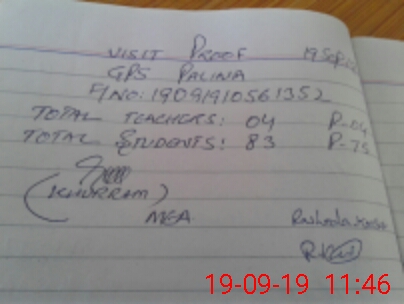 VISIT PROOF 19 Sep
GPS PALINA
F/NO: 19091910561352
TOTAL TEACHERS: 04 P-04
TOTAL STUDENTS: 83 P-75
(KHURRAM)
MEA
19-09-19 11:46